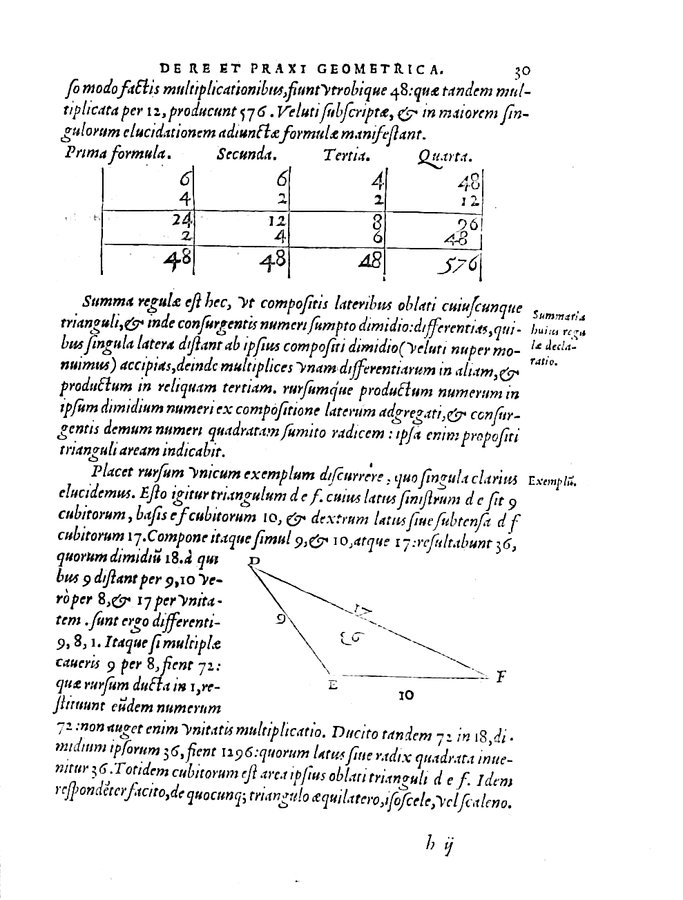 DE RE ET PRAXI GEOMETRICA. 30
ſo modo factis multiplicationibus, fiunt vtrobique 48: quæ tandem mul-
tiplicata per 12, producunt 576. Veluti ſubſcriptæ, & in maiorem ſin-
gulorum elucidationem adiunctæ formulæ manifeſtant.
Prima formula. Secunda. Tertia. Quarta.
6 6 4 48
4 2 2 12
24 12 8 96
2 4 6 48
48 48 48 576
Summa regulæ eſt hec, vt compoſitis lateribus oblati cuiuſcunque
trianguli, & inde conſurgentis numeri ſumpto dimidio: differentias, qui-
bus ſingula latera diſtant ab ipſius compoſiti dimidio (veluti nuper mo-
nuimus) accipias, deinde multiplices vnam differentiarum in aliam, &
productum in reliquam tertiam. rurſumq́ue productum numerum in
ipſum dimidium numeri ex compoſitione laterum adgregati, & conſur-
gentis demum numeri quadratam ſumito radicem: ipſa enim propoſiti
trianguli aream indicabit.
Summaria
huius regu
læ decla-
ratio.
Placet rurſum vnicum exemplum diſcurrere, quo ſingula clarius
elucidemus. Eſto igitur triangulum d e f. cuius latus ſiniſtrum d e ſit 9
cubitorum, baſis e f cubitorum 10, & dextrum latus ſiue ſubtenſa d f
cubitorum 17. Compone itaque ſimul 9, & 10, atque 17: reſultabunt 36,
Exemplũ.
quorum dimidiũ 18. à qui
bus 9 diſtant per 9, 10 ve-
rò per 8, & 17 per vnita-
tem. ſunt ergo differenti-
9, 8, 1. Itaque ſi multiplæ
caueris 9 per 8, fient 72:
quæ rurſum ducta in 1, re-
ſtituunt eũdem numerum
D
9
17
36
E
10
F
72: non auget enim vnitatis multiplicatio. Ducito tandem 72 in 18, di-
midium ipſorum 36, fient 1296: quorum latus ſiue radix quadrata inue-
nitur 36. Totidem cubitorum eſt area ipſius oblati trianguli d e f. Idem
reſpondẽter facito, de quocunq; triangulo æquilatero, iſoſcele, vel ſcaleno.
h ij